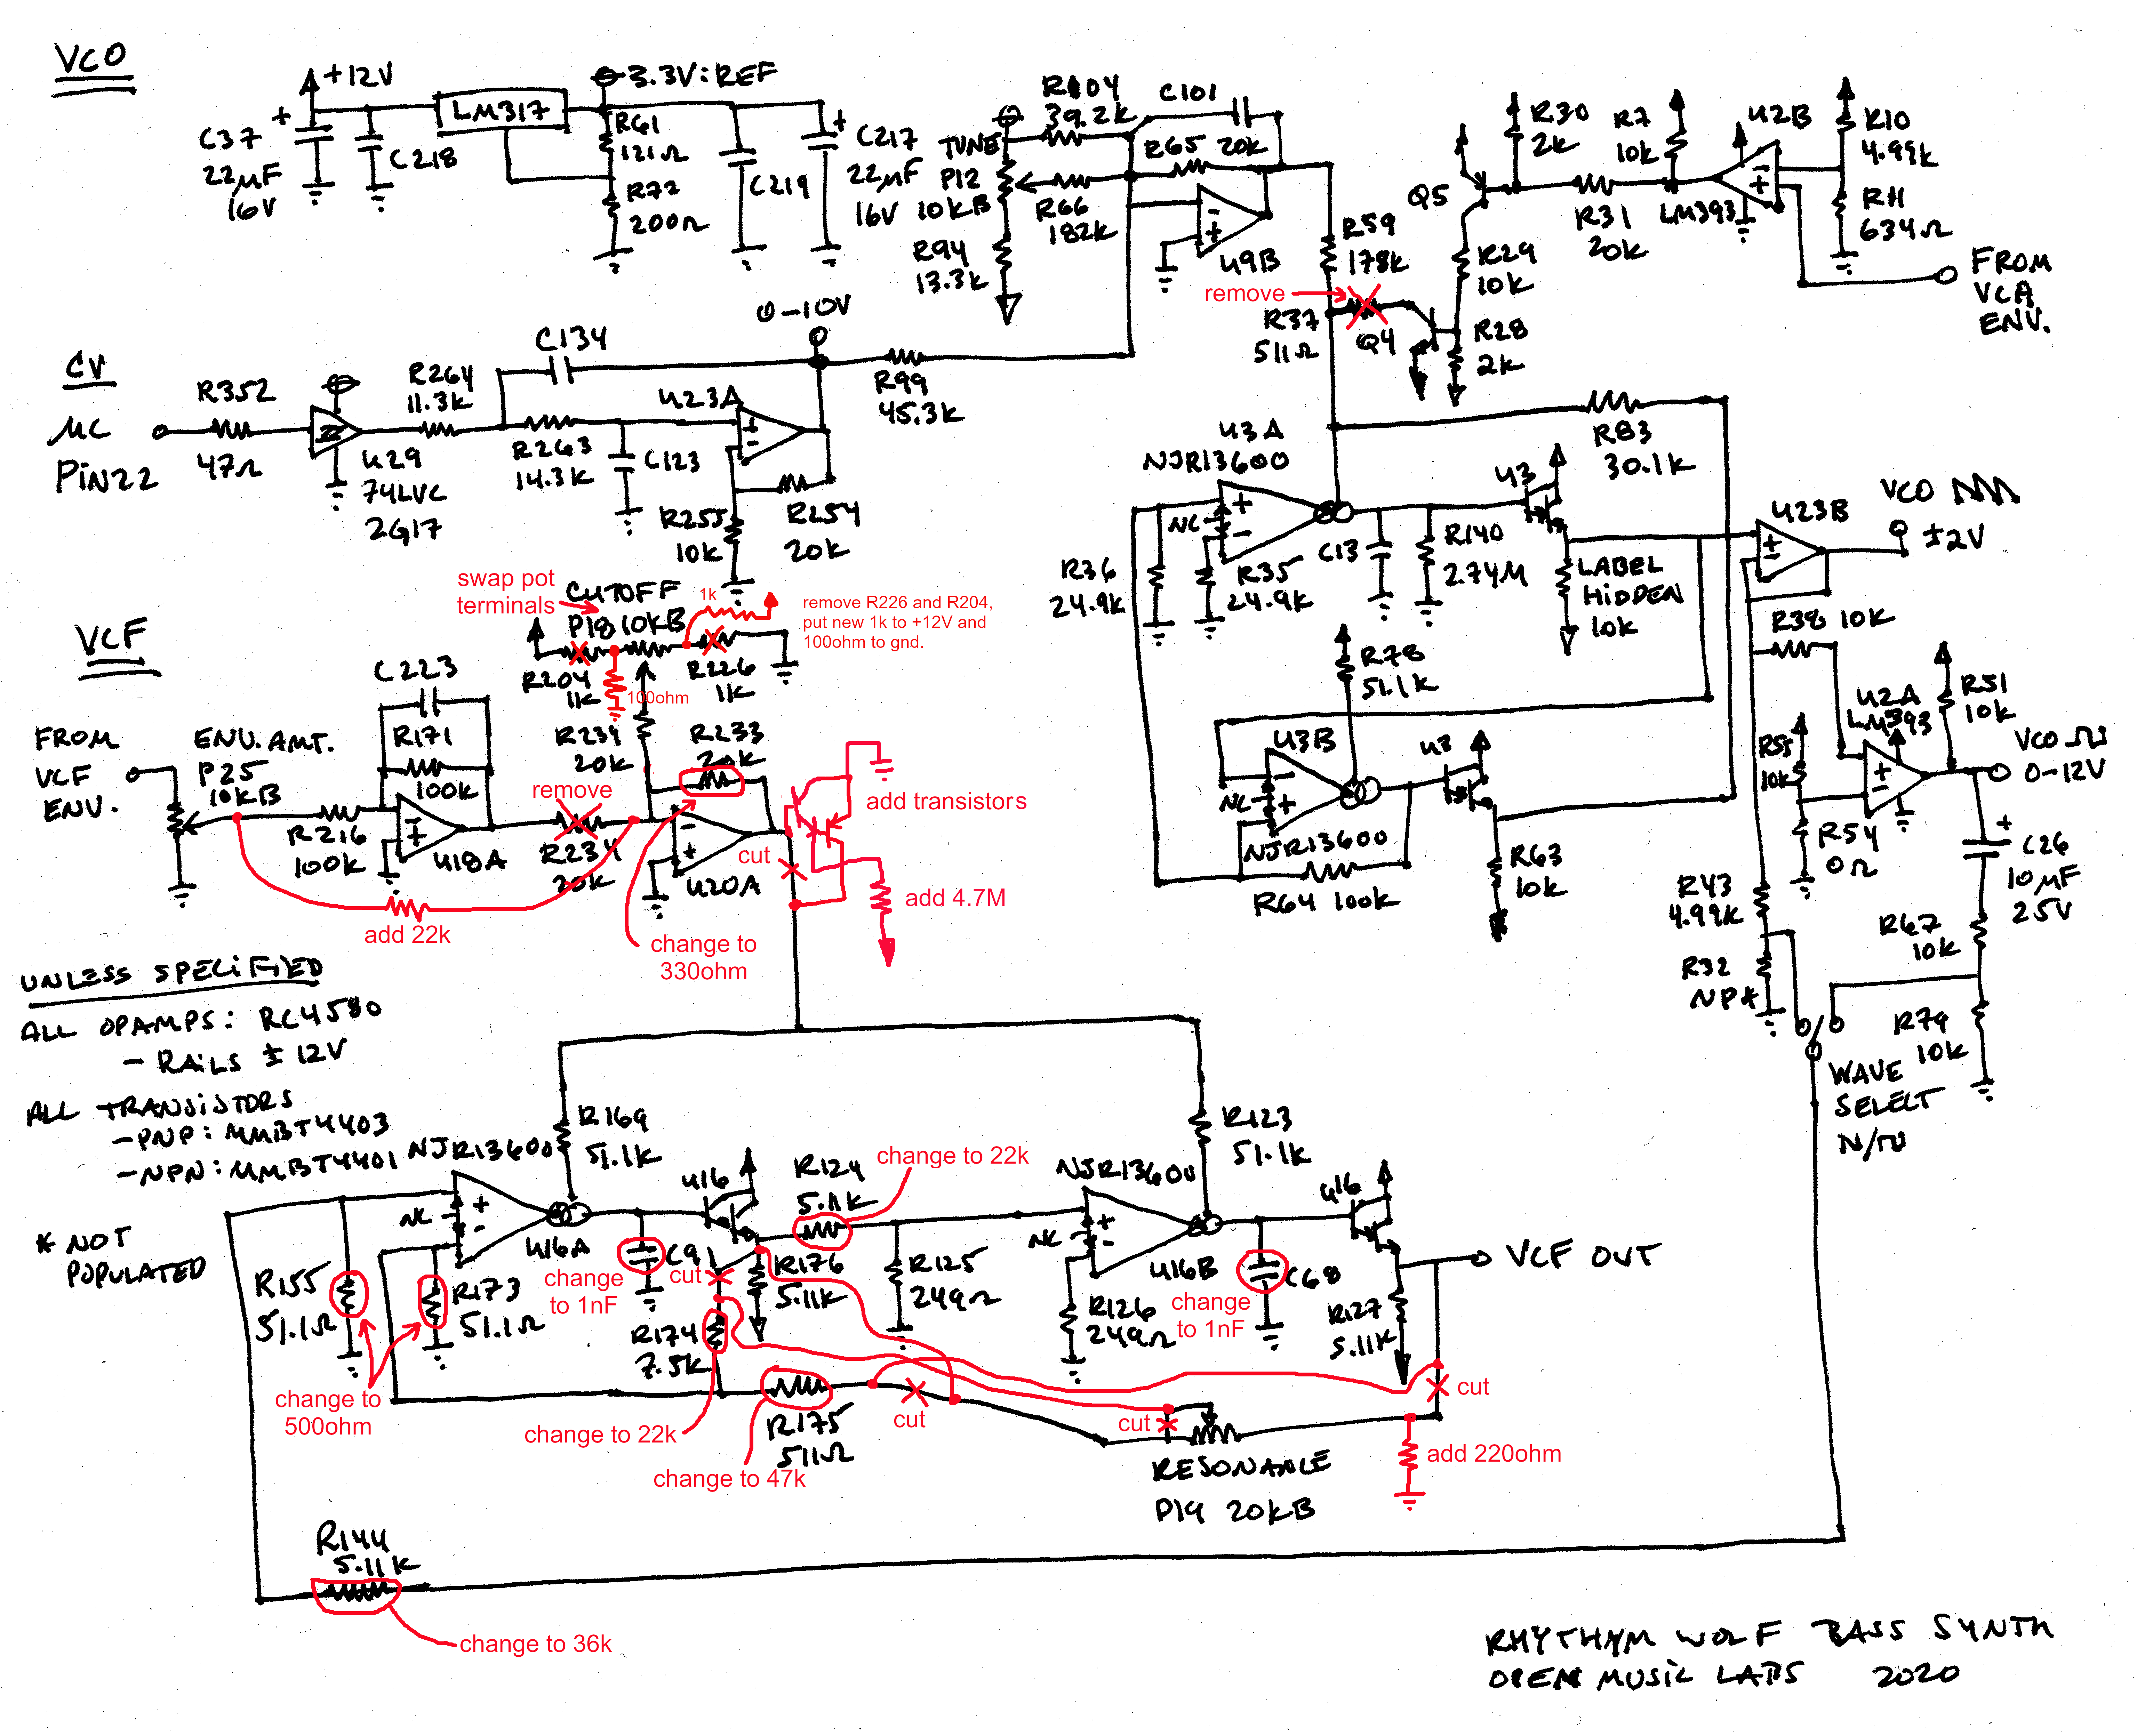 VCO
+12V
LM317
3.3V:REF
C37
22µF
16V
C218
R61
121Ω
R72
200Ω
C219
C217
22µF
16V
TUNE
P12
10KB
R94
13.3K
R104
39.2K
R66
182K
C101
R65 20K
-
+
U9B
R59
178K
remove
R37
511Ω
Q4
Q5
R30
2K
R29
10K
R28
2K
R31
20K
R7
10K
LM393
U2B
-
+
R10
4.99K
R11
634Ω
FROM
VCA
ENV.
CV
µC
PIN22
R352
47Ω
U29
74LVC
2G17
R264
11.3K
R263
14.3K
C134
C123
U23A
+
-
0-10V
R255
10K
R254
20K
R99
45.3K
U3A
NJR13600
+
NC
-
R36
24.9K
R35
24.9K
C13
R140
2.74M
U3
LABEL
HIDDEN
10K
R83
30.1K
U23B
+
-
VCO
±2V
R78
51.1K
U3B
-
NC
+
NJR13600
R64 100K
U3
R63
10K
R38 10K
U2A
LM393
+
-
R55
10K
R54
0Ω
R51
10K
VCO
0-12V
+
C26
10µF
25V
R43
4.99K
R32
NP*
R67
10K
R79
10K
WAVE
SELECT
VCF
swap pot
terminals
CUTOFF
P18 10KB
1k
remove R226 and R204,
put new 1k to +12V and
100ohm to gnd.
R204
1K
100ohm
R226
1K
FROM
VCF
ENV.
ENV. AMT.
P25
10KB
R216
100K
C223
R171
100K
-
+
U18A
remove
R234
20K
add 22k
R239
20K
R233
20K
change to
330ohm
-
+
U20A
cut
add transistors
add 4.7M
UNLESS SPECIFIED
ALL OPAMPS: RC4580
- RAILS ± 12V
ALL TRANSISTORS
- PNP: MMBT4403
- NPN: MMBT4401
* NOT
POPULATED
NJR13600
+
NC
-
U16A
R169
51.1K
R155
51.1Ω
R173
51.1Ω
change to
500ohm
C91
change
to 1nF
cut
U16
R176
5.11K
R174
7.5K
change to 22k
R124
5.11K
change to 22k
R125
249Ω
R175
511Ω
change to 47k
cut
NJR13600
+
NC
-
U16B
R123
51.1K
R126
249Ω
C68
change
to 1nF
U16
R127
5.11K
VCF OUT
cut
cut
RESONANCE
P19 20KB
add 220ohm
R144
5.11K
change to 36k
RHYTHYM WOLF BASS SYNTH
OPEN MUSIC LABS 2020